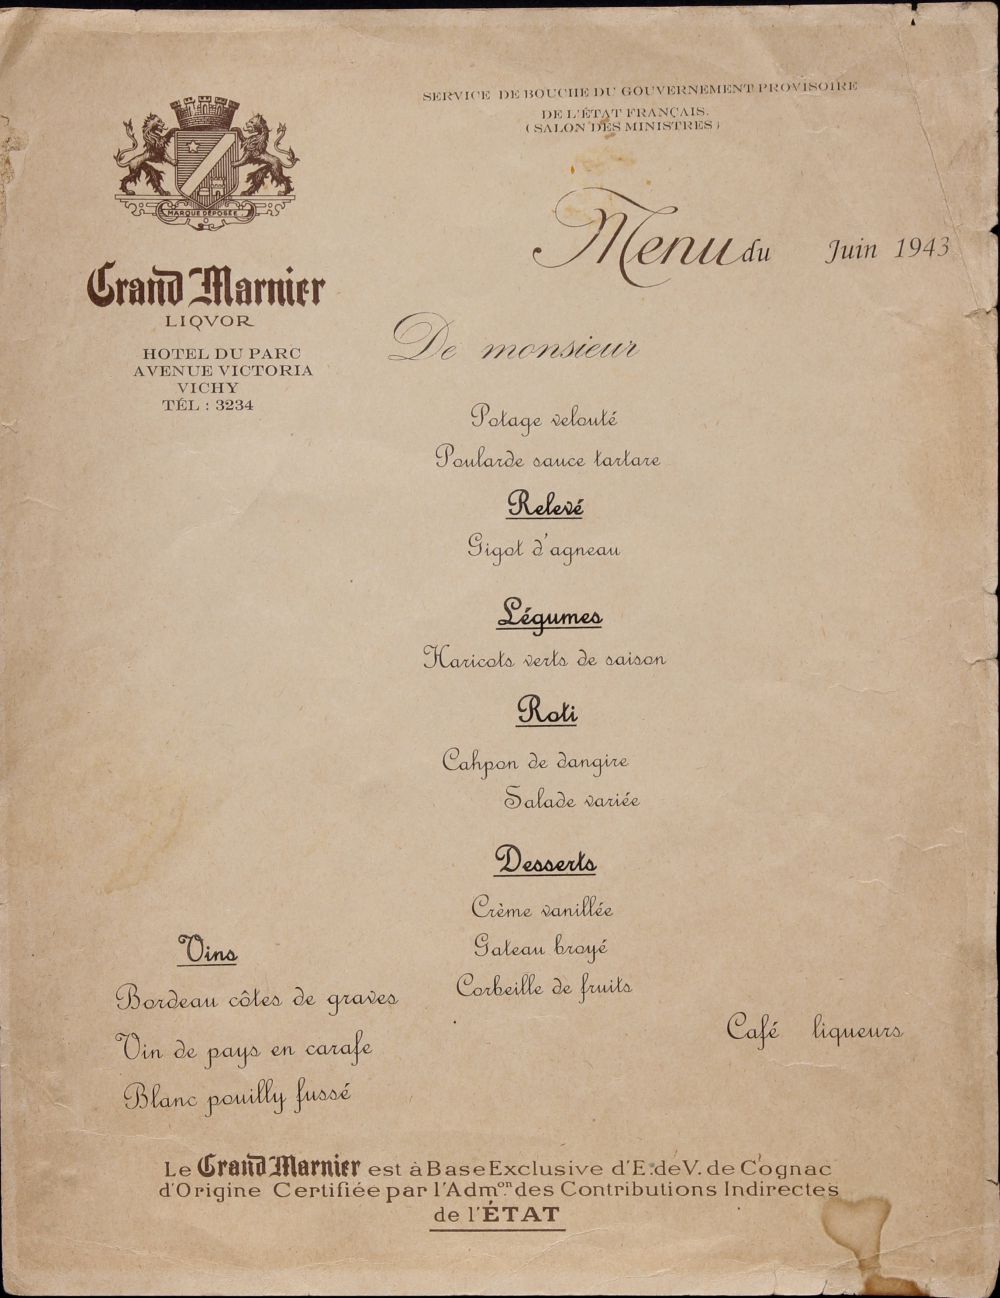 SERVICE DE BOUCHE DU GOUVERNEMENT PROVISOIRE
DE L'ÉTAT FRANÇAIS.
(SALON DES MINISTRES)
MARQUE DÉPOSÉE
Grand Marnier
LIQVOR
HOTEL DU PARC
AVENUE VICTORIA
VICHY
TÉL : 3234
Menu du Juin 1943
De monsieur
Potage velouté
Poularde sauce tartare
Relevé
Gigot d'agneau
Légumes
Haricots verts de saison
Roti
Cahpon de dangire
Salade variée
Desserts
Crème vanillée
Gateau broyé
Corbeille de fruits
Café liqueurs
Vins
Bordeau côtes de graves
Vin de pays en carafe
Blanc pouilly fussé
Le Grand Marnier est à Base Exclusive d'E.de V. de Cognac
d'Origine Certifiée par l'Admon. des Contributions Indirectes
de l'ÉTAT